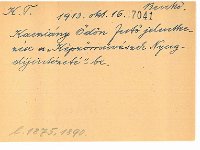 K. T. 1913. okt. 16. 7041 Benkő
Kacziány Ödön festő jelentke-
zése a "Képzőművészek Nyug-
díjintézeté"be.
l. 1875, 1890.